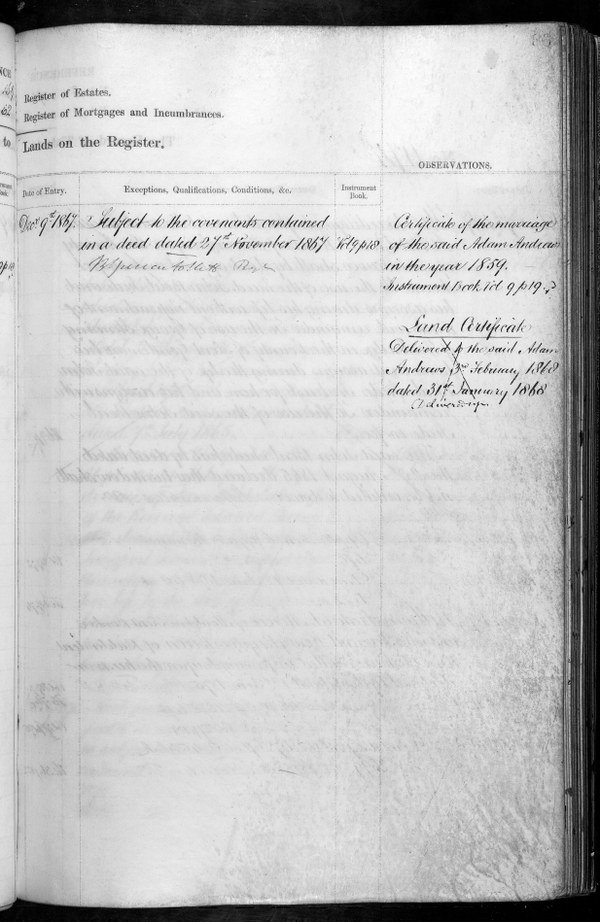 Register of Estates.
Register of Mortgages and Incumbrances.
Lands on the Register.
OBSERVATIONS.
Date of Entry.
Exceptions, Qualifications, Conditions, &c.
Instrument
Book.
Decr 9th 1867.
Subject to the covenants contained
in a deed dated 27th November 1867
Vol 9 p 18
Certificate of the marriage
of the said Adam Andrews
in the year 1859.
Instrument Book Vol 9 p 19
Land Certificate
Delivered to the said Adam
Andrews 3rd February 1868
dated 31st January 1868